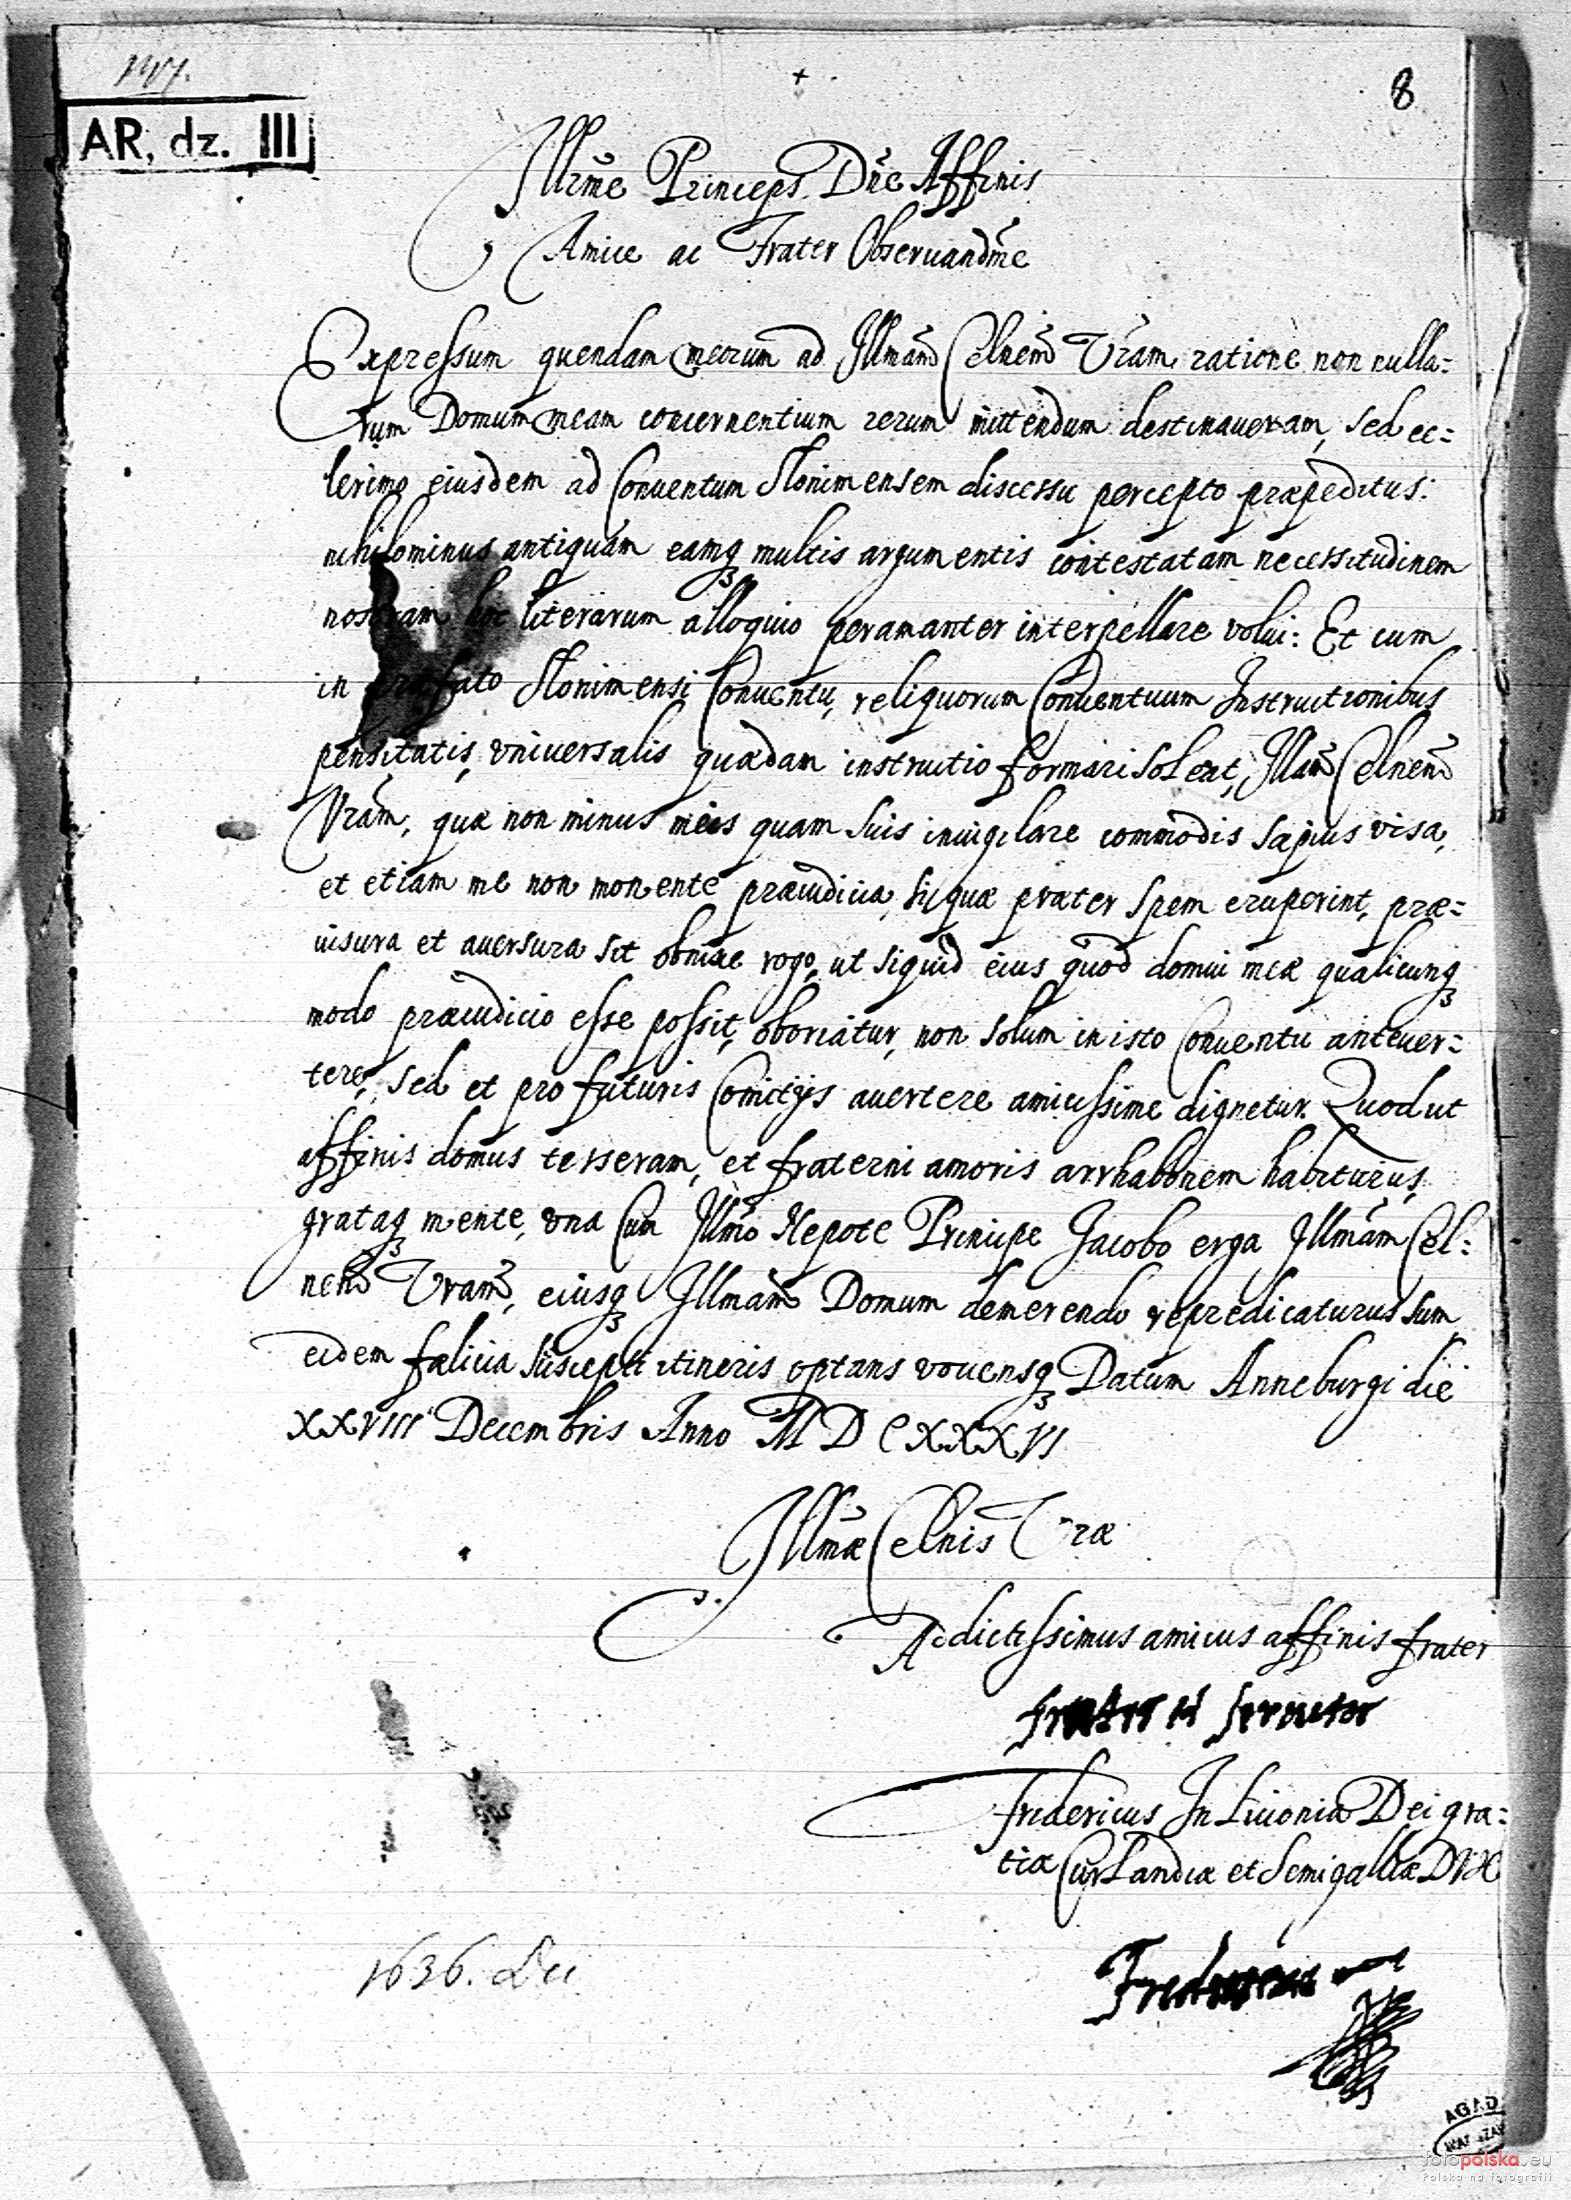 8
AR, dz. III
Illrme Princeps Dne Affinis
Amice ac Frater Obseruandme
Expressum quendam meorum ad Illmam Celnem Vram ratione non nulla=
rum Domum meam concernentium rerum mittendum destinaueram, sed ce=
lerimo eiusdem ad Conuentum Slonimensem discessu percepto præpeditus:
nihilominus antiquam eamq multis argumentis contestatam necessitudinem
nostram hoc literarum alloquio peramanter interpellare volui: Et cum
in præfato Slonimensi Conuentu, reliquorum Conuentuum Instructionibus
pensitatis, vniuersalis quædam instructio formari soleat, Illam Celnem
Vram, quæ non minus meis quam suis inuigilare commodis sæpius visa,
et etiam me non monente præiudicia, si quæ præter spem eruperint, præ=
uisura et auersura sit obnixe rogo, ut siquid eius quod domui meæ qualicunq
modo præiudicio esse possit, oboriatur, non solum in isto Conuentu anteuer=
tere, sed et pro futuris Comitijs auertere amicissime dignetur. Quod ut
affinis domus tesseram, et fraterni amoris arrhabonem habiturus,
grataq mente, vna cum Illmo Nepote Principe Jacobo erga Illmam Cel=
nem Vram, eiusq Illmam Domum demerendo repredicaturus sum
eidem fælicia suscepti itineris optans vouensq Datum Anneburgi die
XXVIII Decembris Anno MDCXXXVI
Illmæ Celnis Vræ
Addictissimus amicus affinis frater
Fridericus In Liuonia Dei gra=
tia Curlandiæ et Semigalliæ DVX
1636.
AGAD
fotopolska.eu
Polska na fotografii